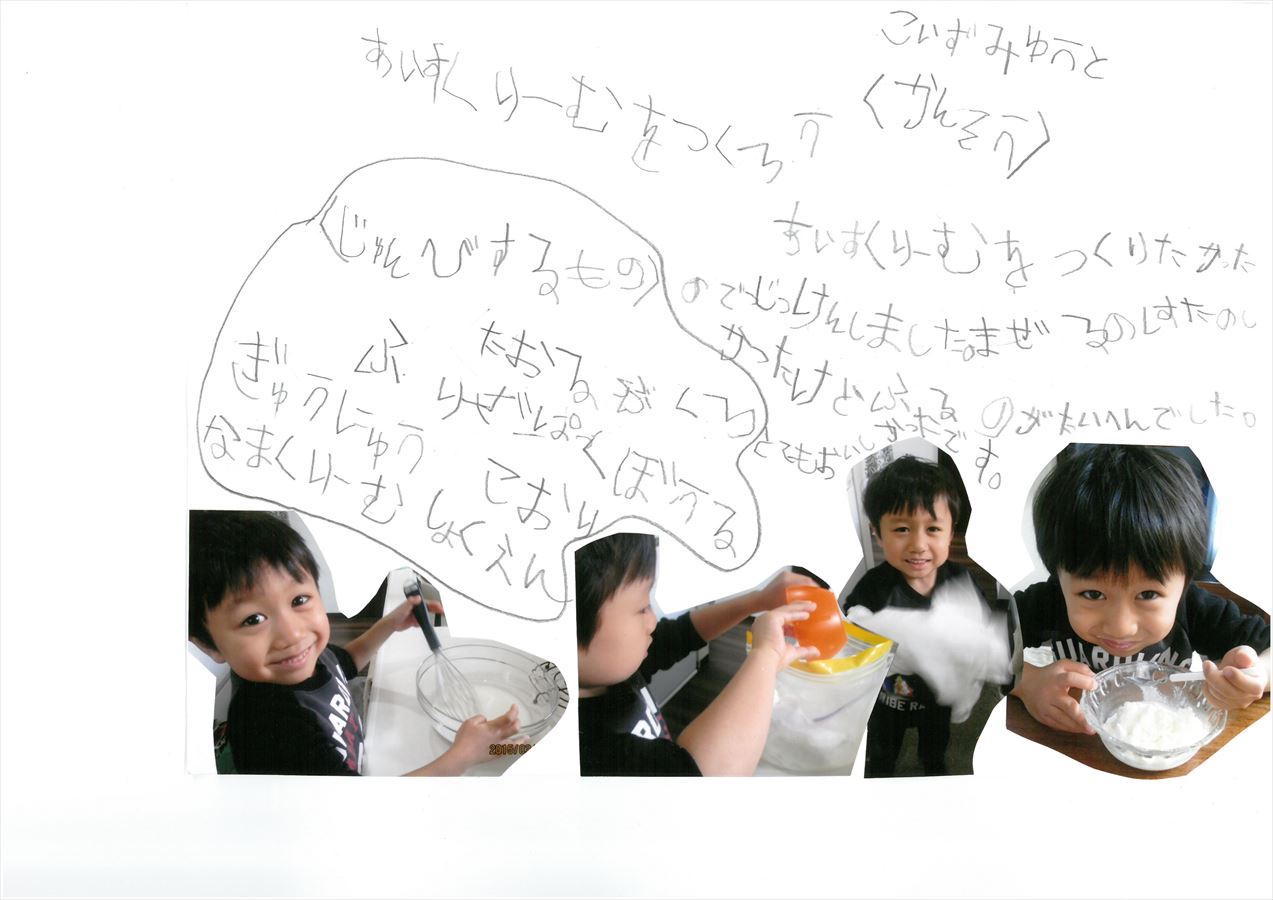 こいずみゆうと
あいすくりーむをつくろう
〈かんそう〉
〈じゅんびするもの〉
たおる
ぎゅうにゅう
ぼうる
なまくりーむ しょくえん こおり
あいすくりーむを つくりたかった
のでじっけんしました。まぜるのはたのし
かったけどふるのがたいへんでした。
とてもおいしかったです。
2015/02